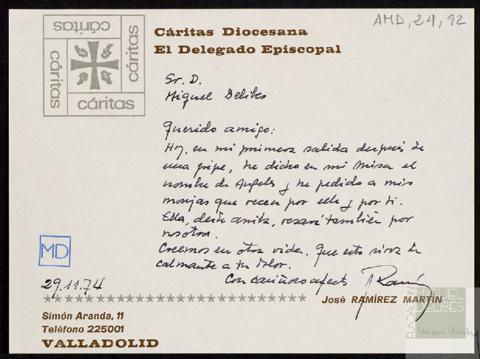 cáritas
cáritas
cáritas
cáritas
Cáritas Diocesana
El Delegado Episcopal
AMD, 24, 92
Sr. D.
Miguel Delibes
Querido amigo:
Hoy, en mi primera salida después de
una gripe, he dicho en mi misa el
nombre de Angeles y he pedido a mis
monjas que recen por ella y por ti.
Ella, desde arriba, rezará también por
nosotros.
Creemos en otra vida. Que esto sirva de
calmante a tu dolor.
Con cariñoso afecto
MD
29.11.74
José RAMÍREZ MARTÍN
Simón Aranda, 11
Teléfono 225001
VALLADOLID
FUNDACIÓN
MIGUEL
DELIBES